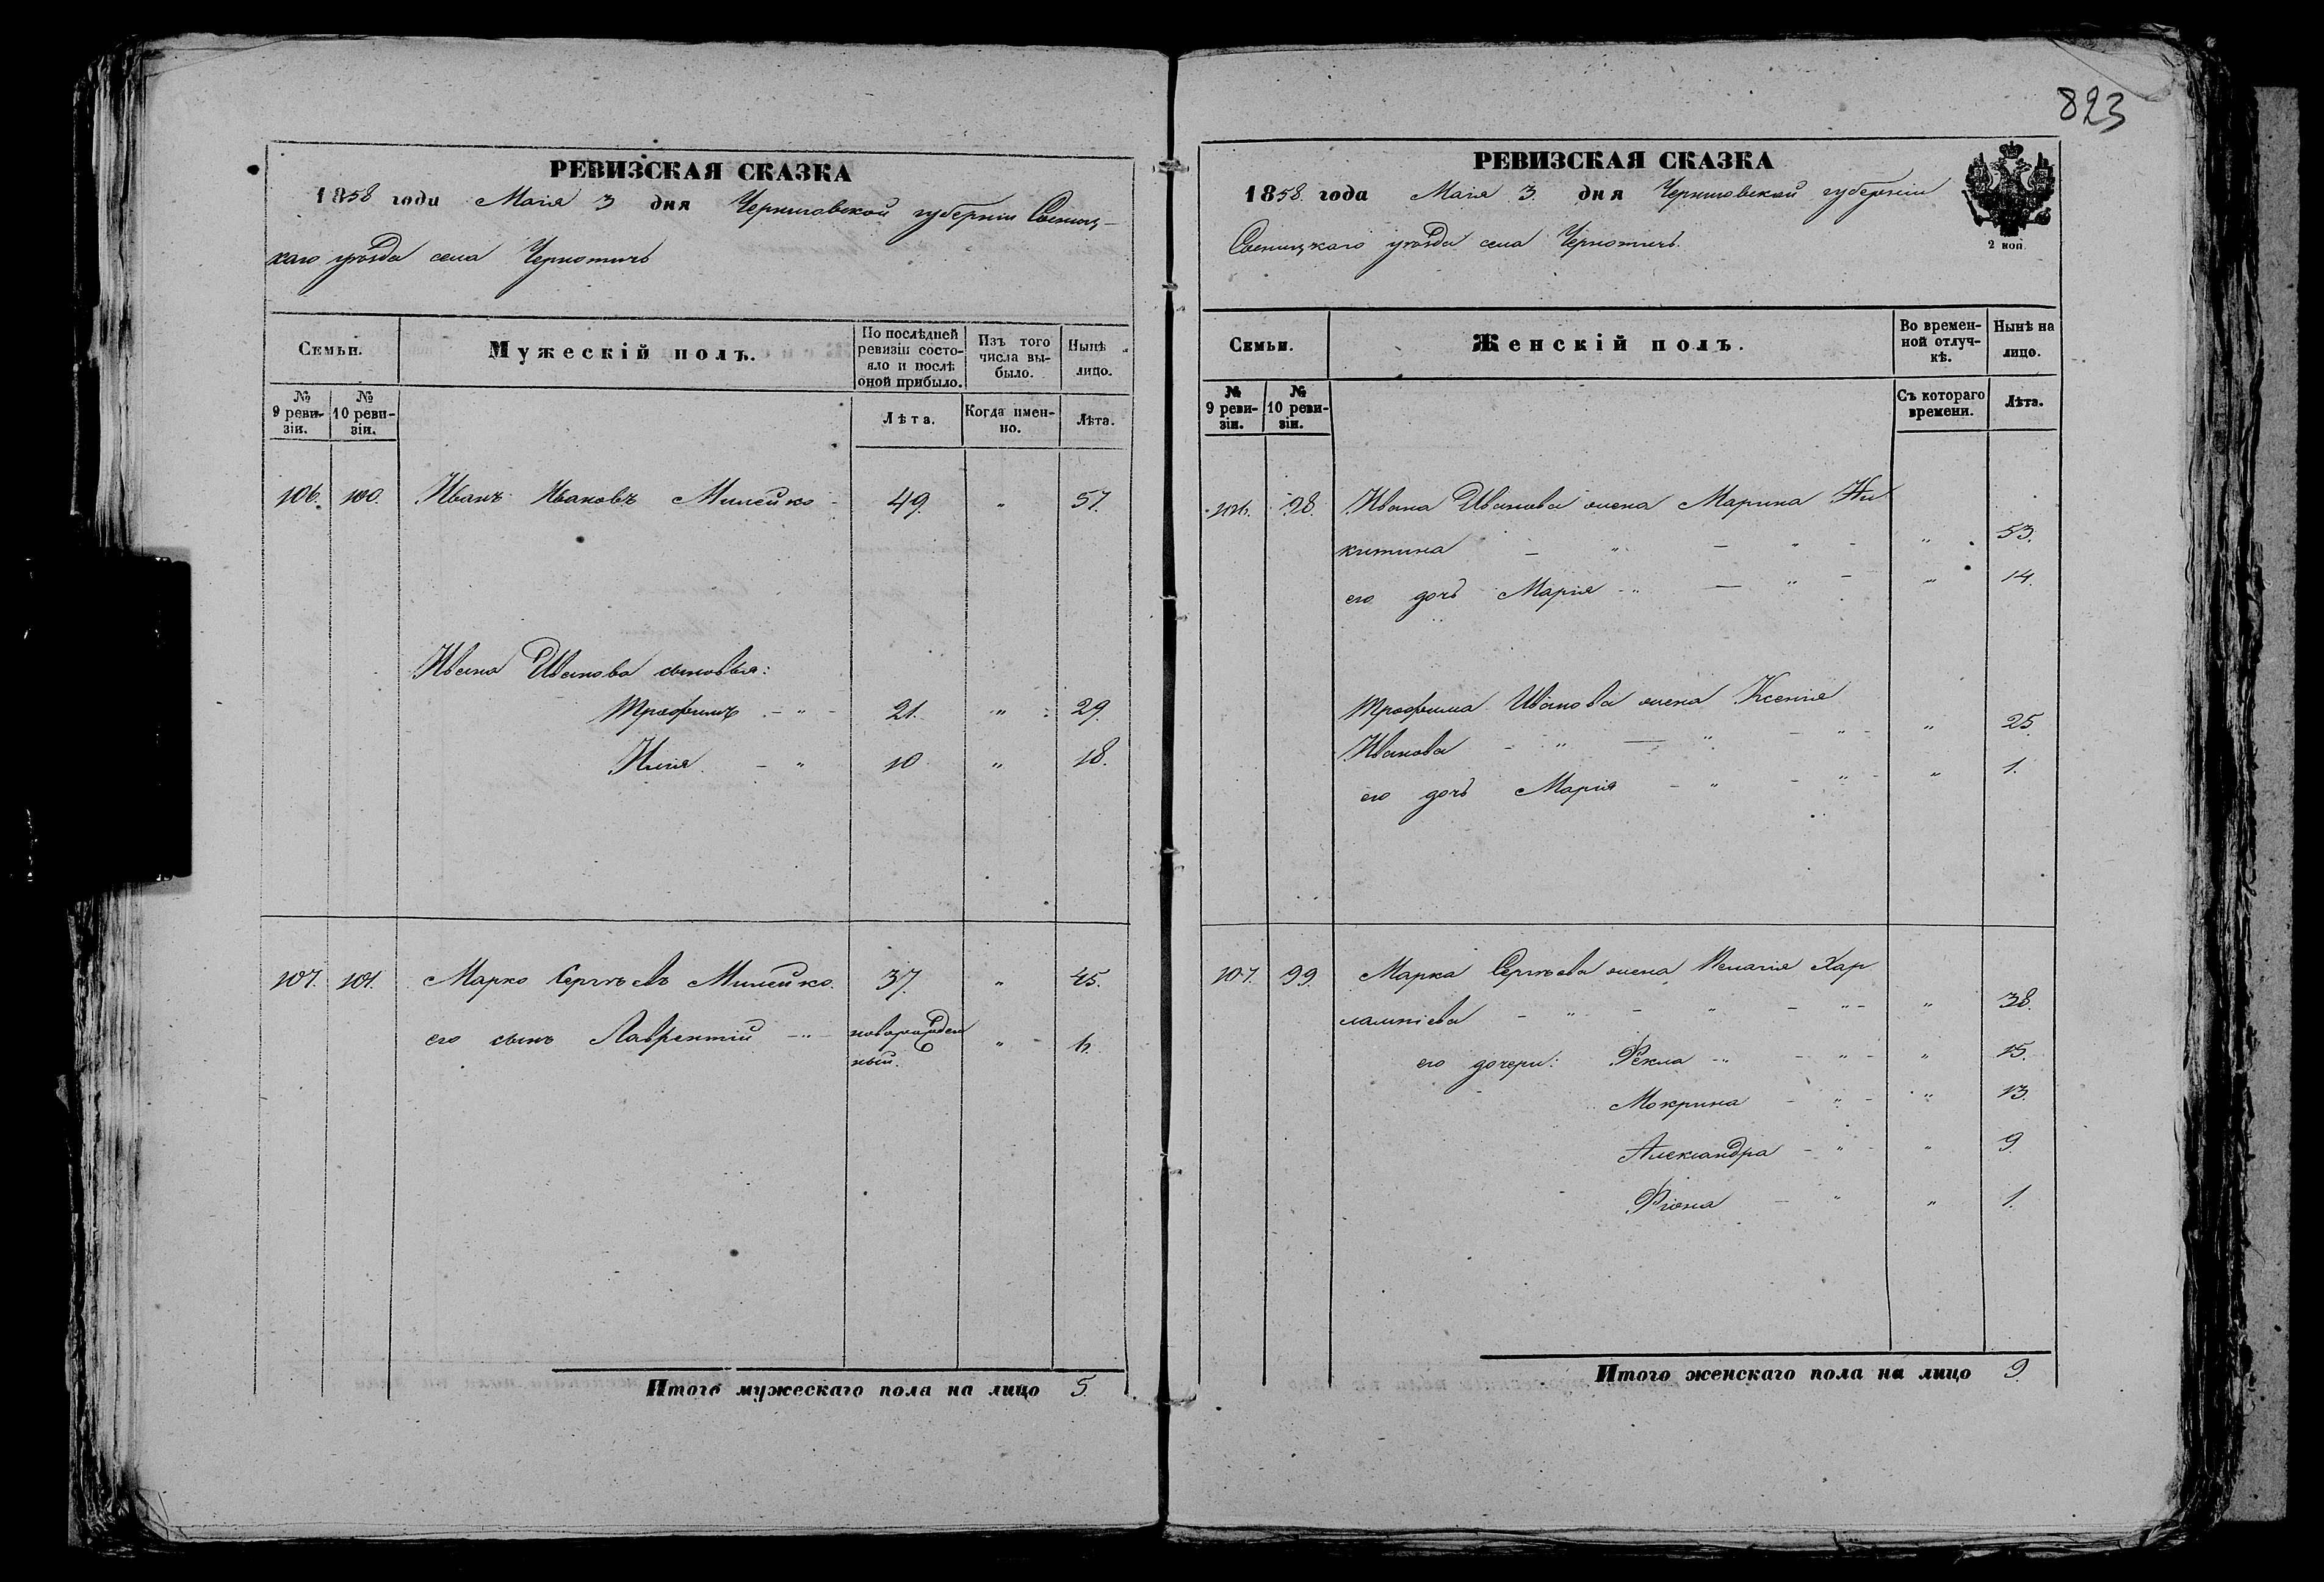 823
РЕВИЗСКАЯ СКАЗКА
1858 года Маія 3 дня Черниговской губерніи Сосниц-
каго уѣзда села Чернотичь
Семьи.
Мужескій полъ.
По послѣдней ревизіи состояло и послѣ оной прибыло.
Изъ того числа выбыло.
Нынѣ на лицо.
№ 9 ревизіи.
№ 10 ревизіи.
Лѣта.
Когда именно.
Лѣта.
106. 100. Иванъ Ивановъ Милейко 49. " 57.
Ивана Иванова сыновья:
Трофимъ - " - 21. " 29.
Илія - " 10 " 18.
107. 101. Марко Сергѣевъ Милейко. 37. " 45.
его сынъ Лаврентій - " - новорожден
ный.
Итого мужескаго пола на лицо 5.
РЕВИЗСКАЯ СКАЗКА
1858. года Маія 3. дня Черниговской губерніи
Сосницкаго уѣзда села Чернотичь.
2 коп.
Семьи.
Женскій полъ.
Во временной отлучкѣ.
Нынѣ на лицо.
№ 9 ревизіи.
№ 10 ревизіи.
Съ котораго времени.
Лѣта.
106. 98. Ивана Иванова жена Марина Ни
китина - " - " - " 53.
его дочь Марія - " - " - " 14.
Трофима Иванова жена Ксенія
Иванова - " - " - " - " 25.
его дочь Марія - " - " - " 1.
107. 99. Марка Сергѣева жена Пелагія Хар
лампіева - " - " - " - " 38.
его дочери: Ѳекла - " - " - " 15.
Мокрина - " - " 13.
Александра - " - " 9.
Фіона - " " 1.
Итого женскаго пола на лицо 9.